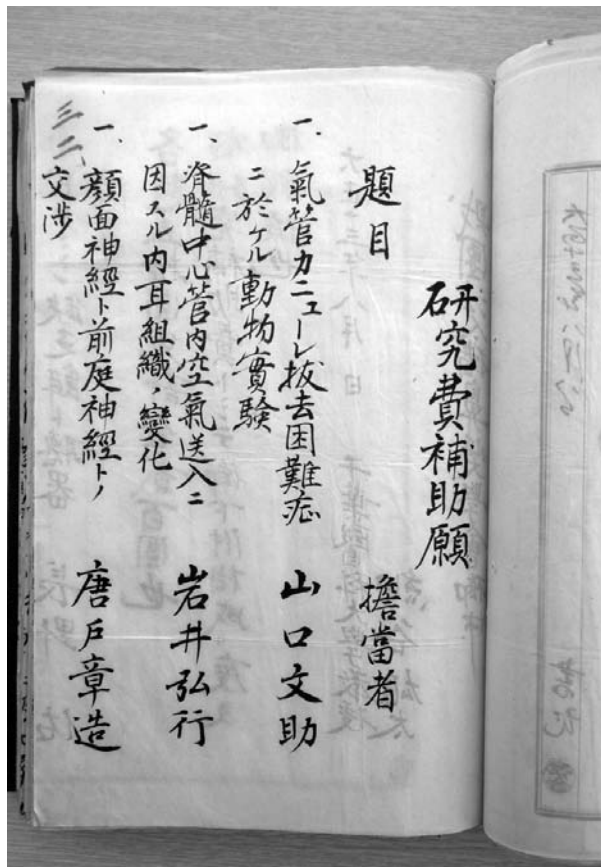 研究費補助願
題目　擔當者
一、氣管カニューレ拔去困難症
ニ於ケル動物實驗　山口文助
一、脊髓中心管内空氣送入ニ
因スル内耳組織ノ變化　岩井弘行
一、顔面神經ト前庭神經トノ
交渉　唐戸章造
三二